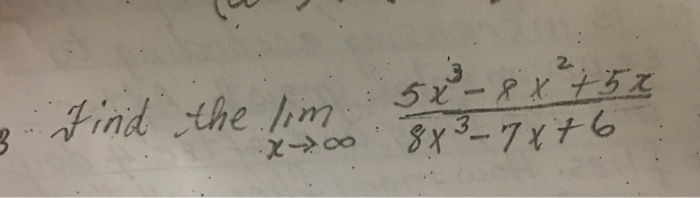 3 Find the lim x→∞ (5x³ - 8x² + 5x)/(8x³ - 7x + 6)